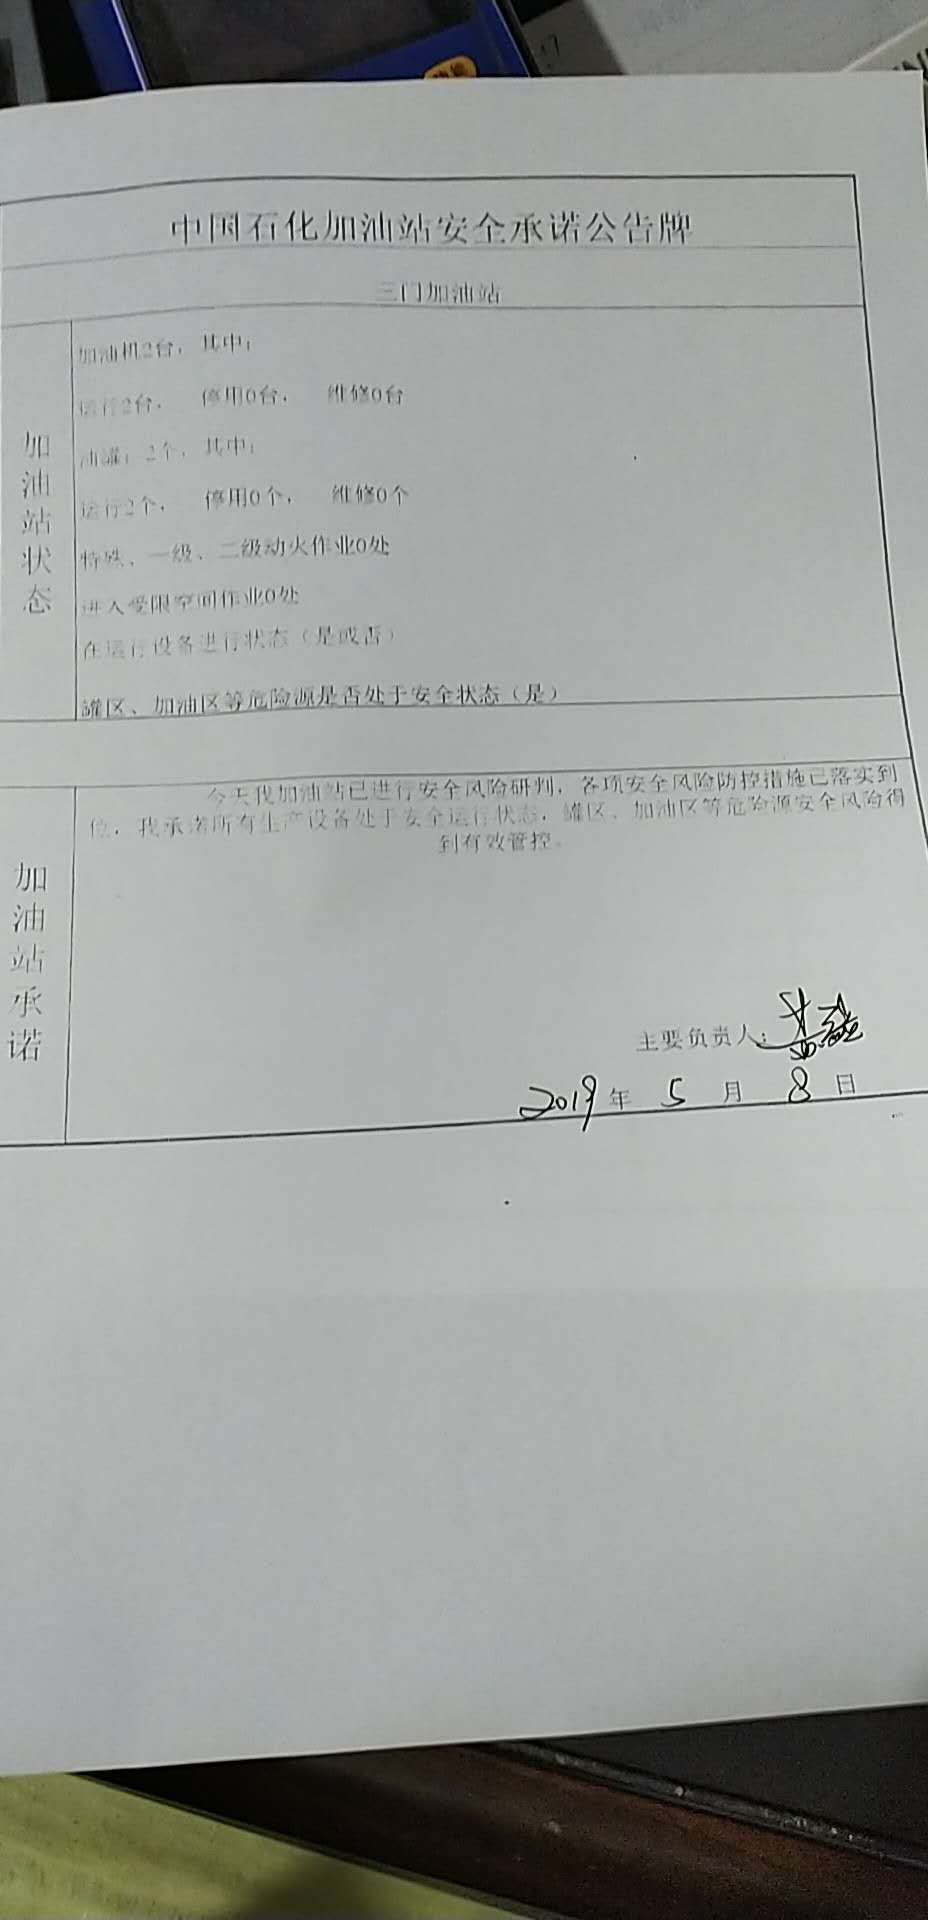 中国石化加油站安全承诺公告牌
三门加油站
加油站状态
加油机2台，其中：
运行2台， 停用0台， 维修0台
油罐：2个，其中：
运行2个， 停用0个， 维修0个
特殊、一级、二级动火作业0处
进入受限空间作业0处
在运行设备进行状态（是或否）
罐区、加油区等危险源是否处于安全状态（是）
加油站承诺
今天我加油站已进行安全风险研判，各项安全风险防控措施已落实到
位，我承诺所有生产设备处于安全运行状态，罐区、加油区等危险源安全风险得
到有效管控。
主要负责人：
2019年 5 月 8 日